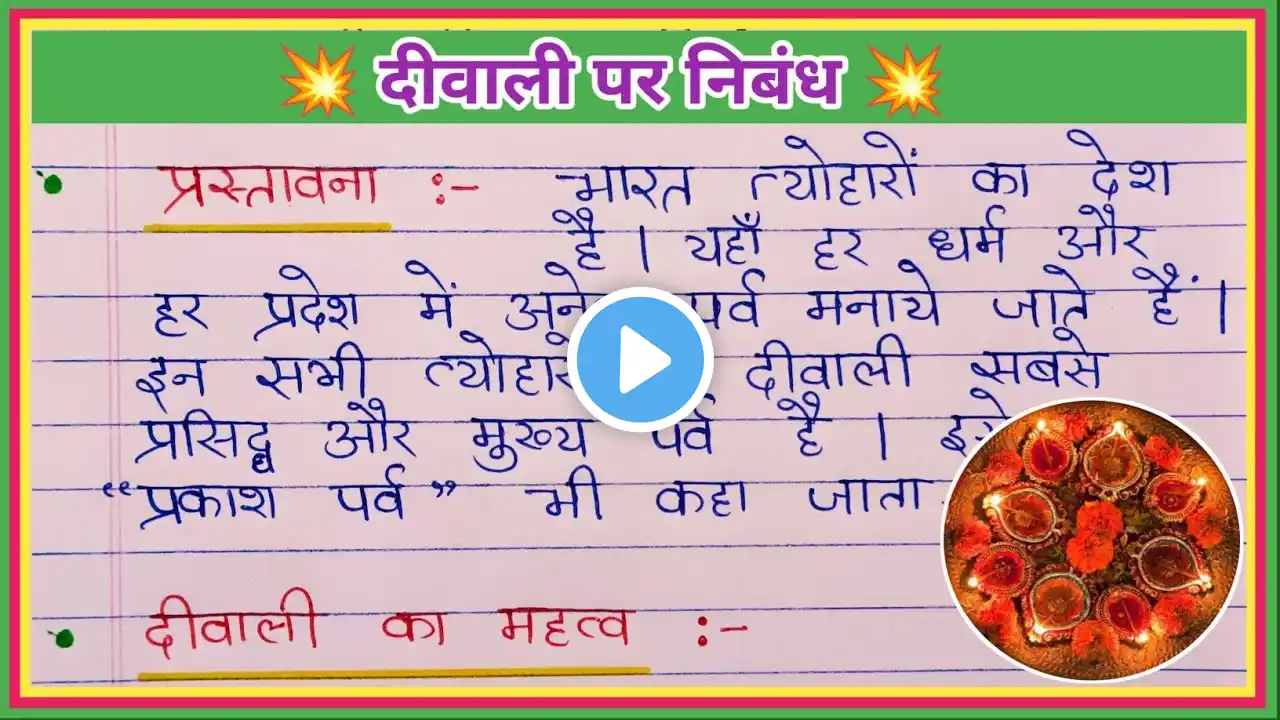 दीवाली पर निबंध
प्रस्तावना :- भारत त्योहारों का देश
है । यहाँ हर धर्म और
हर प्रदेश में पर्व मनाये जाते हैं ।
इन सभी दीवाली सबसे
प्रसिद्ध और मुख्य पर्व है ।
“प्रकाश पर्व” भी कहा जाता
दीवाली का महत्व :-